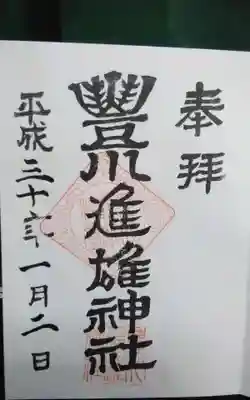 奉拝
豐川進雄神社
平成三十六年一月二日